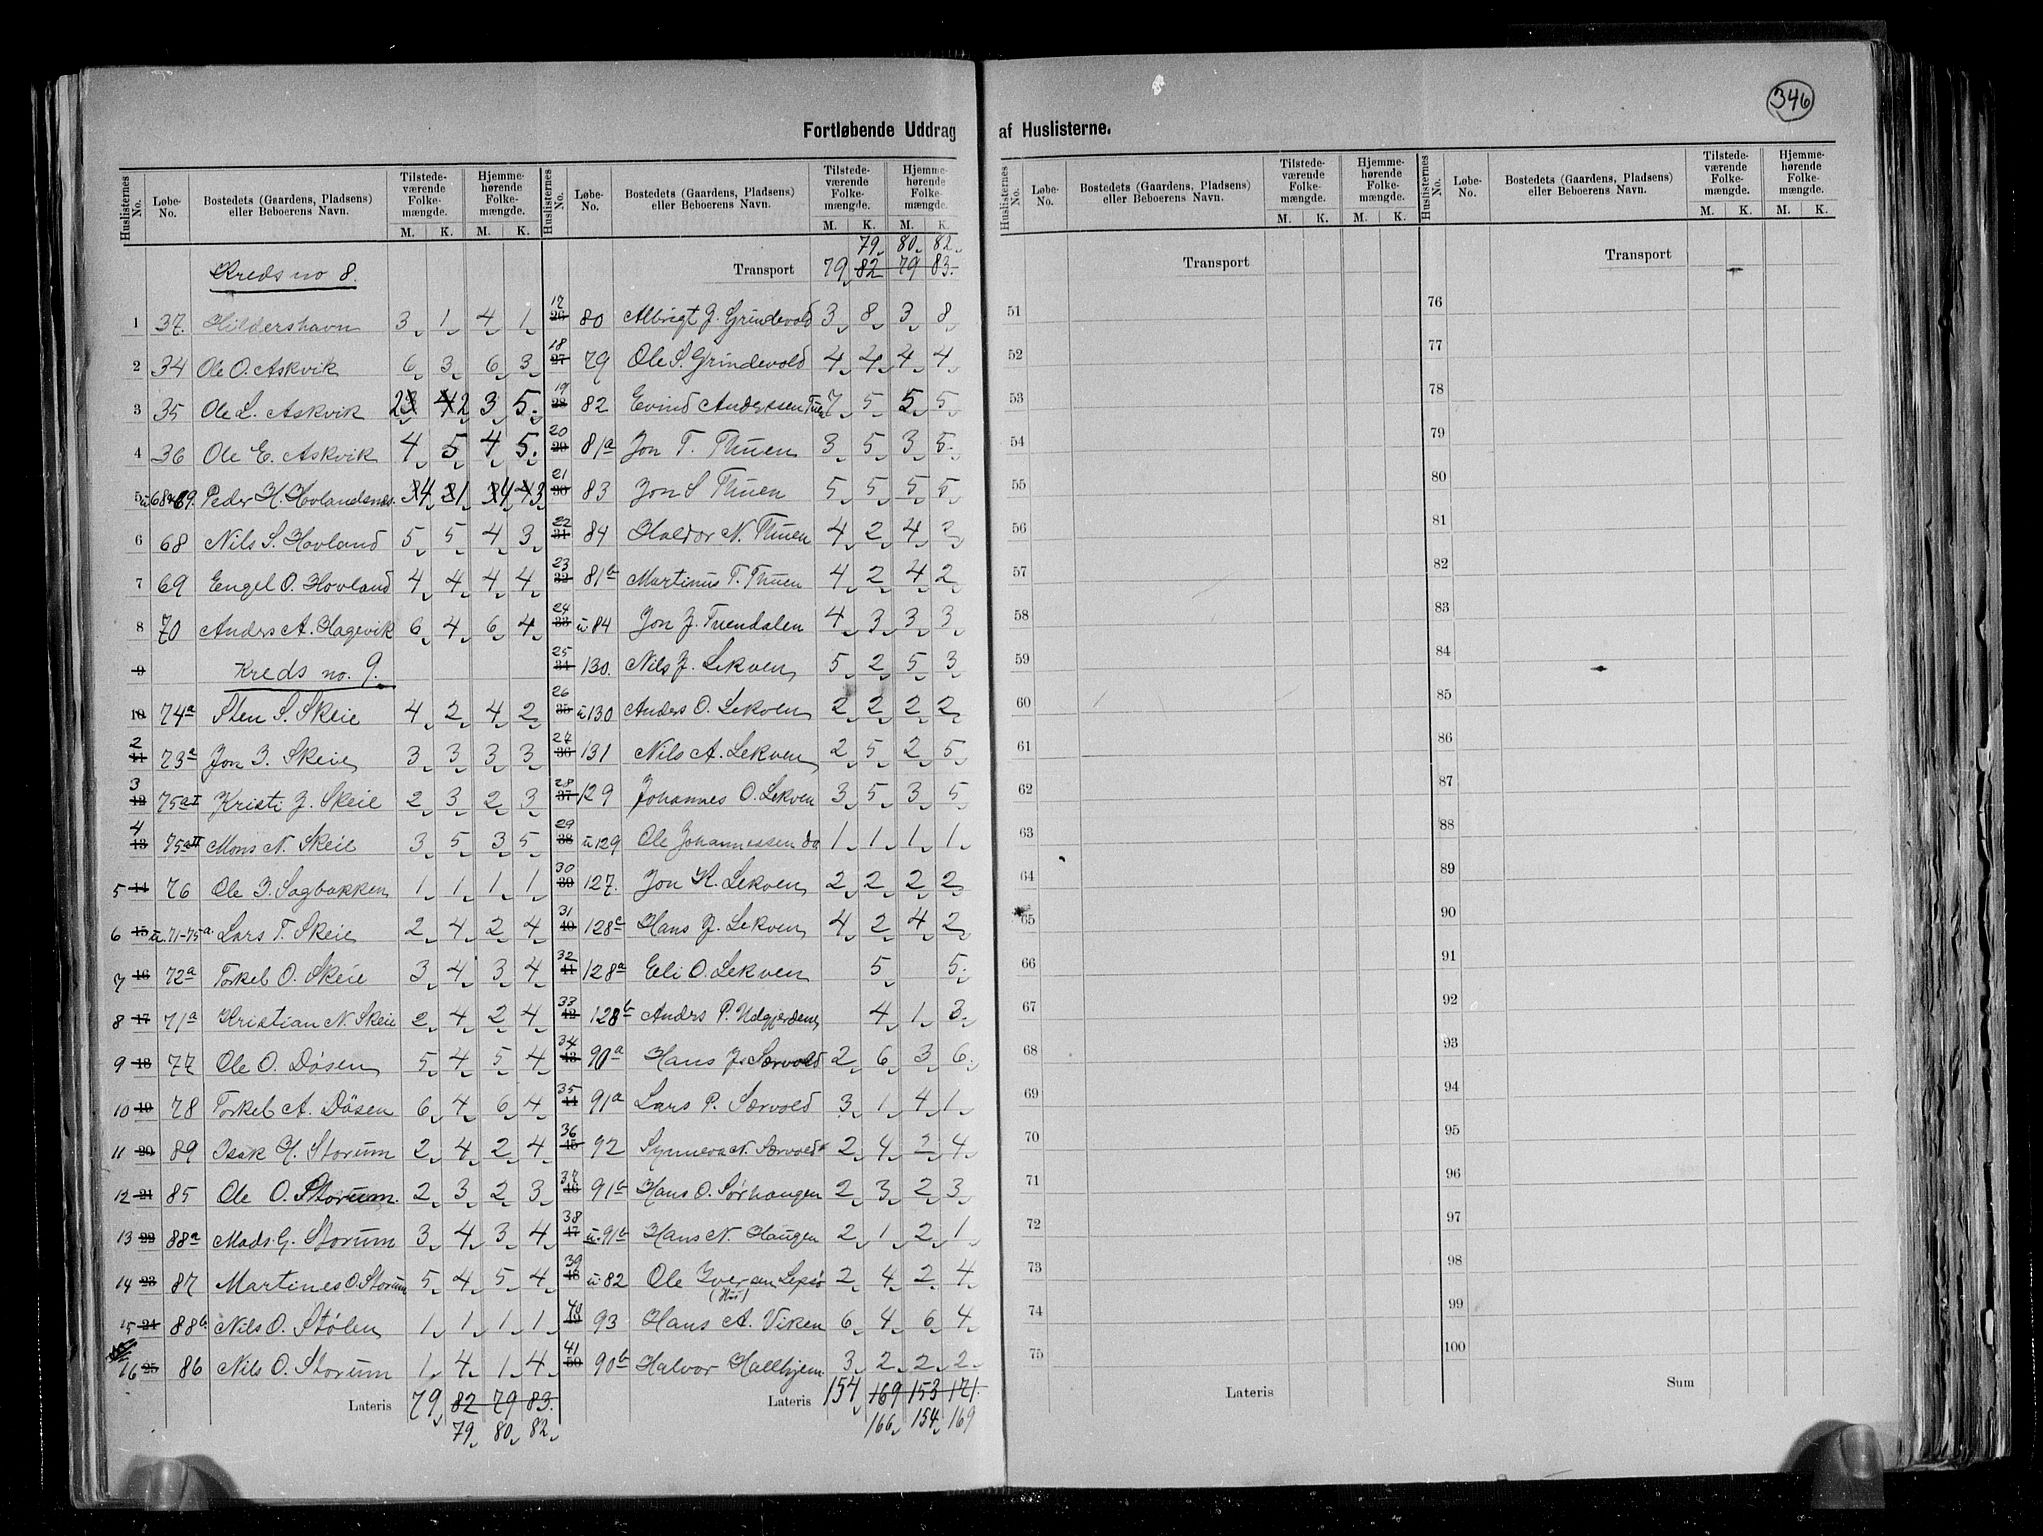 346
Fortløbende Uddrag af Huslisterne.
Huslisternes No. Løbe-No. Bostedets (Gaardens, Pladsens) eller Beboerens Navn. Tilstede-værende Folke-mængde. M. K. Hjemme-hørende Folke-mængde. M. K.
Kreds no 8.
1 37. Hildershavn 3 1 4 1
2 34 Ole O. Askvik 6 3 6 3
3 35 Ole L. Askvik 2 2 3 5
4 36 Ole E. Askvik 4 5 4 5
5 u 68 & 69. Peder H. Hovlandsnes. 4 1 4 3
6 68 Nils S. Hovland 5 5 4 3
7 69 Engel O. Hovland 4 4 4 4
8 70 Anders A. Hagevik 6 4 6 4
9 Kreds no. 9.
10 74a Sten S. Skeie 4 2 4 2
2 11 73a Jon J. Skeie 3 3 3 3
3 12 75a I Kristi J. Skeie 2 3 2 3
4 13 75a II Mons N. Skeie 3 5 3 5
5 14 76 Ole J. Sagbakken 1 1 1 1
6 15 u. 71-75a Lars T. Skeie 2 4 2 4
7 16 72a Torkel O. Skeie 3 4 3 4
8 17 71a Kristian N. Skeie 2 4 2 4
9 18 77 Ole O. Døsen 5 4 5 4
10 19 78 Torkel A. Døsen 6 4 6 4
11 20 89 Isak H. Storum 2 4 2 4
12 21 85 Ole O. Storum. 2 3 2 3
13 22 88a Mads G. Storum 3 4 3 4
14 23 87 Martines O. Storum 5 4 5 4
15 24 88b Nils O. Stølen 1 1 1 1
16 25 86 Nils O. Storum 1 4 1 4
Lateris 79 82 79 83.
79 80 82
Huslisternes No. Løbe-No. Bostedets (Gaardens, Pladsens) eller Beboerens Navn. Tilstede-værende Folke-mængde. M. K. Hjemme-hørende Folke-mængde. M. K.
79 80 82
Transport 79 82 79 83.
17 26 80 Albrigt J. Grindevold 3 8 3 8
18 27 79 Ole S. Grindevold 4 4 4 4
19 28 82 Evind Anderssen Tuen 7 5 5 5
20 29 81a Jon T. Thuen 3 5 3 5
21 30 83 Jon S Thuen 5 5 5 5
22 31 84 Haldor N. Thuen 4 2 4 2
23 32 81b Martinus T. Thuen 4 2 4 2
24 33 u 84 Jon J. Tuendalen 4 3 3 3
25 34 130. Nils J. Lekven 5 2 5 3
26 35 u 130 Anders O. Lekven 2 2 2 2
27 36 131 Nils A. Lekven 2 5 2 5
28 37 129 Johannes O. Lekven 3 5 3 5
29 38 u 129 Ole Johannessen do 1 1 1 1
30 39 127. Jon K. Lekven 2 2 2 2
31 40 128c Hans J. Lekven 4 2 4 2
32 41 128a Eli O. Lekven 5 5
33 42 128b Anders P. Udgjerdene 4 1 3
34 43 90a Hans J. Særvold 2 6 3 6
35 44 91a Lars P. Særvold 3 1 4 1
36 45 92 Synneva N. Særvold 2 4 2 4
37 46 91b Hans O. Sørhaugen 2 3 2 3
38 47 u. 91b Hans N. Haugen 2 1 2 1
39 48 u 82 Ole Iversen Lepsø 2 4 2 4
(Hus)
40 49 93 Hans A. Viken 6 4 6 4
41 50 90b Halvor Hallhjem 3 2 2 2
Lateris 154 169 153 171.
166 154 169
Huslisternes No. Løbe-No. Bostedets (Gaardens, Pladsens) eller Beboerens Navn. Tilstede-værende Folke-mængde. M. K. Hjemme-hørende Folke-mængde. M. K.
Transport
51
52
53
54
55
56
57
58
59
60
61
62
63
64
65
66
67
68
69
70
71
72
73
74
75
Lateris
Huslisternes No. Løbe-No. Bostedets (Gaardens, Pladsens) eller Beboerens Navn. Tilstede-værende Folke-mængde. M. K. Hjemme-hørende Folke-mængde. M. K.
Transport
76
77
78
79
80
81
82
83
84
85
86
87
88
89
90
91
92
93
94
95
96
97
98
99
100
Sum